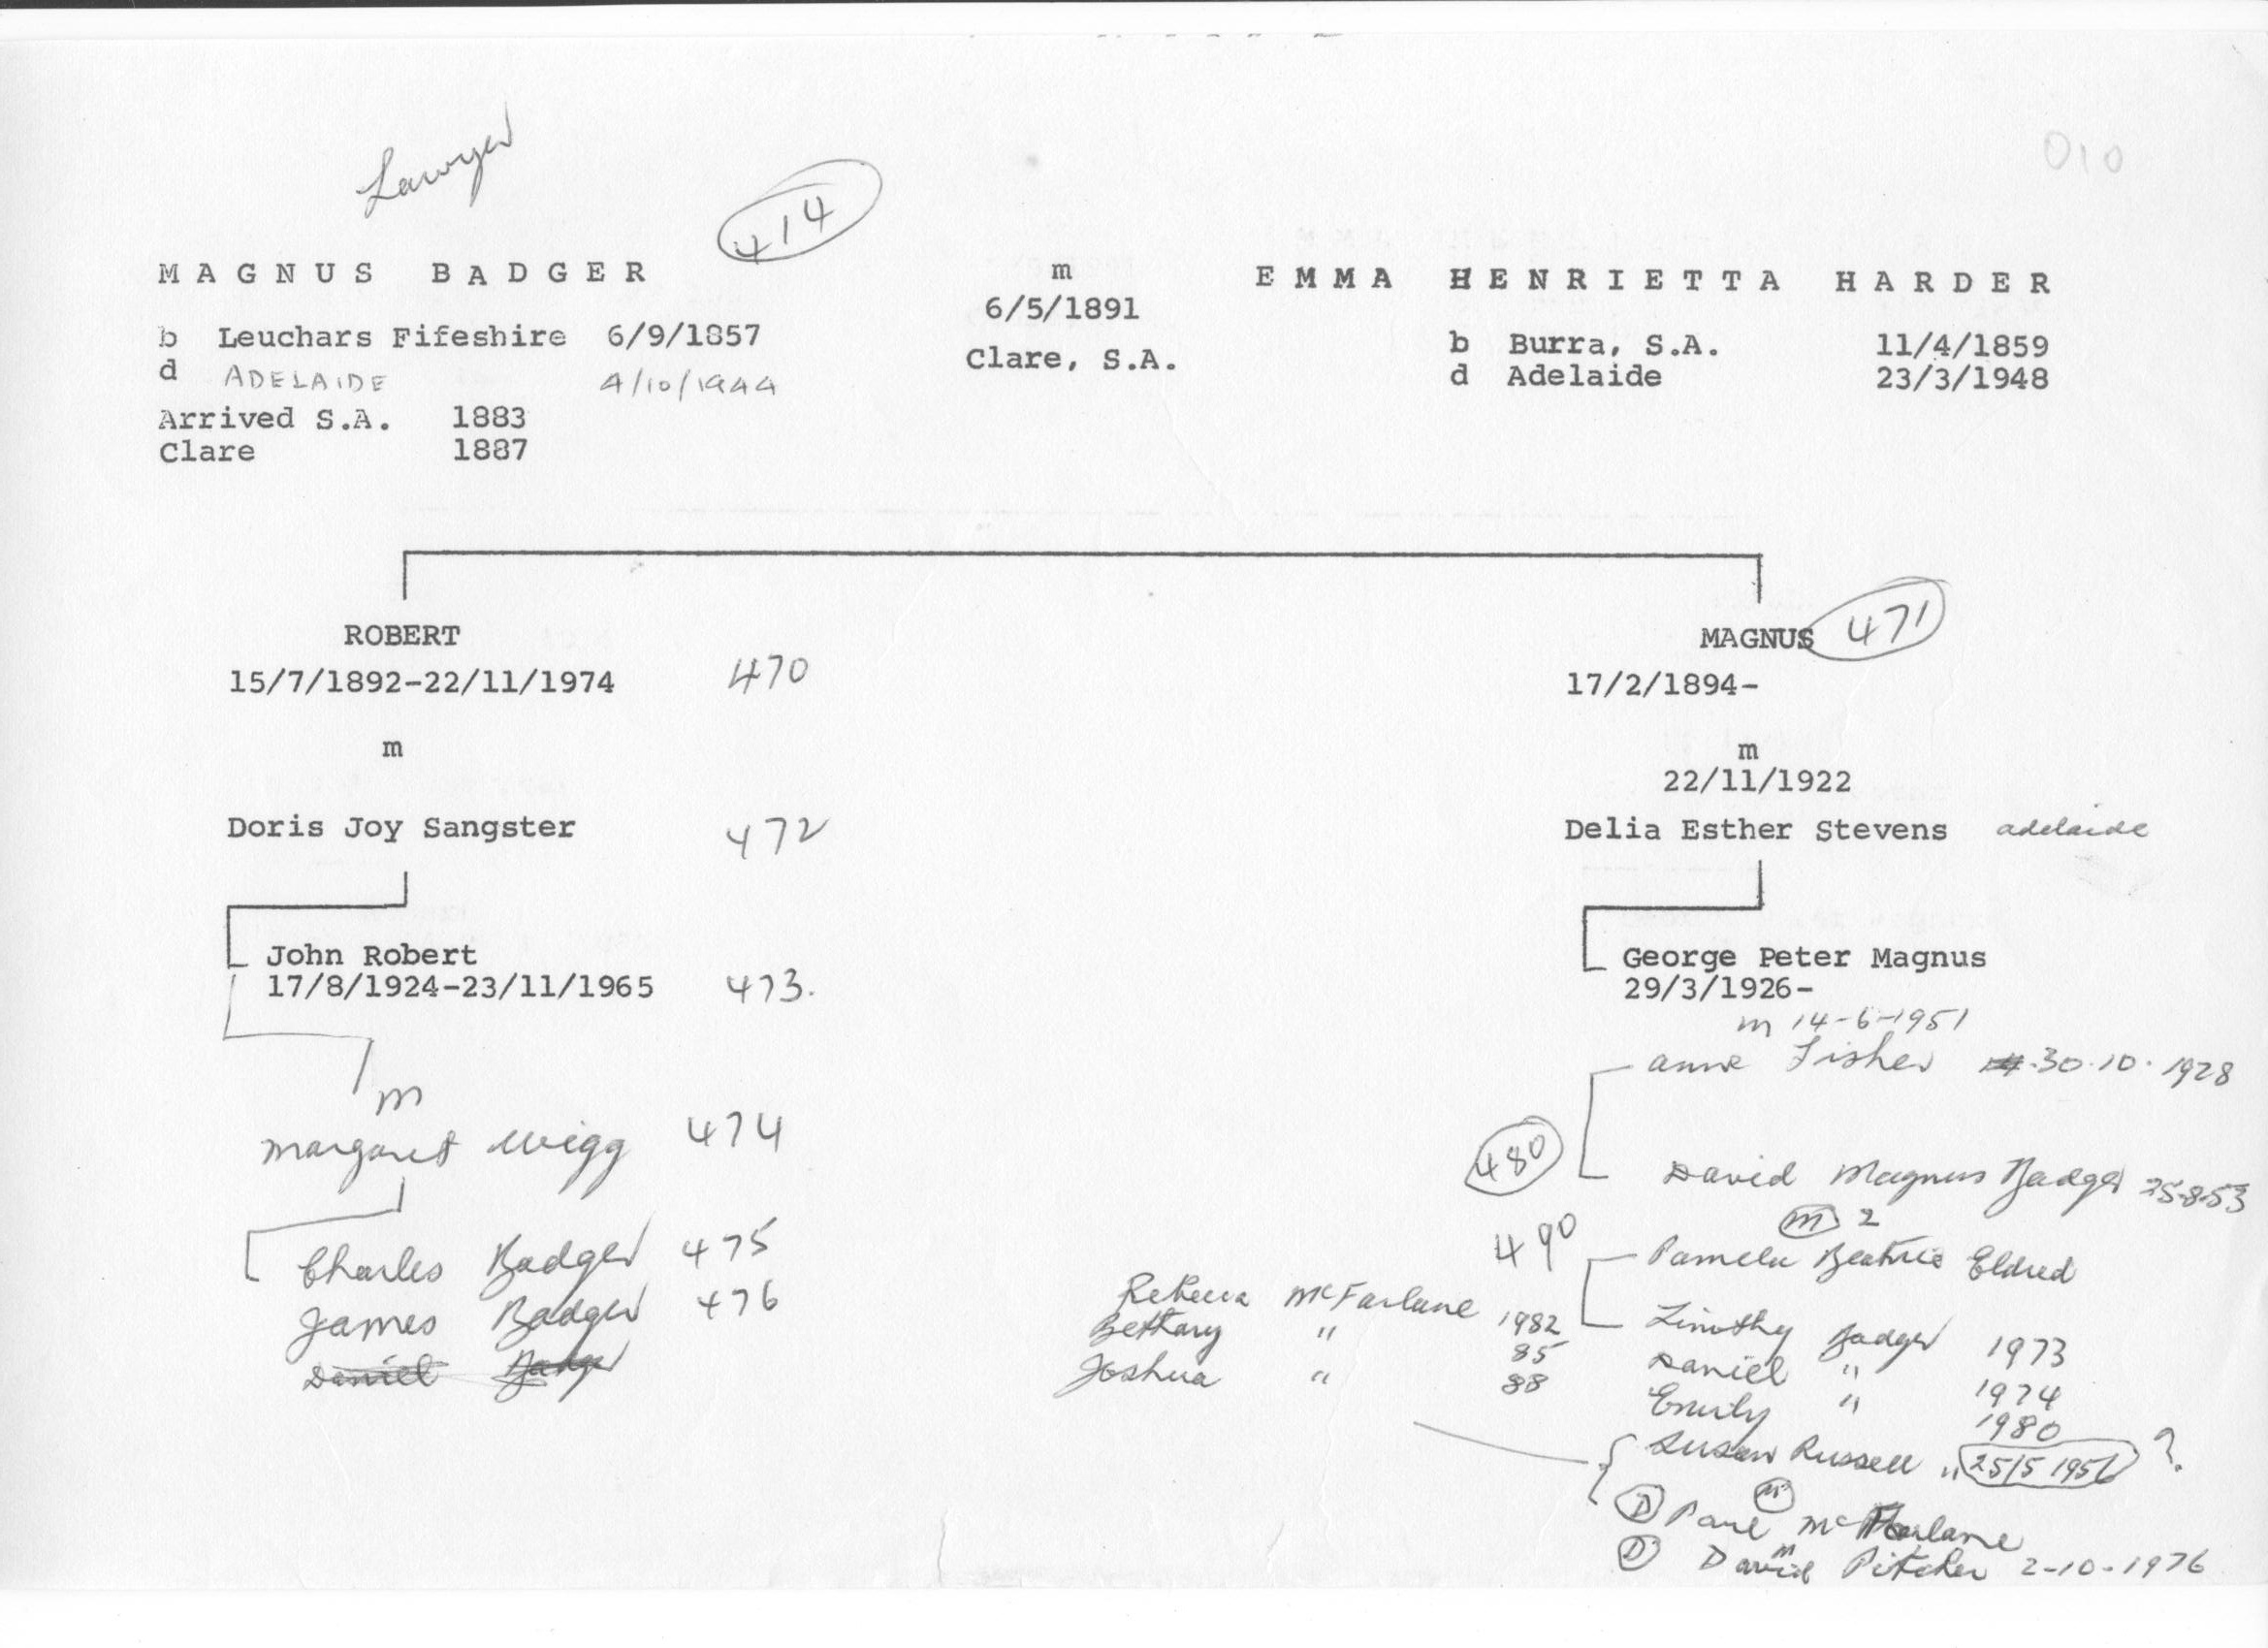 010
Lawyer
414
MAGNUS BADGER
b Leuchars Fifeshire 6/9/1857
d ADELAIDE 4/10/1944
Arrived S.A. 1883
Clare 1887
m
6/5/1891
Clare, S.A.
EMMA HENRIETTA HARDER
b Burra, S.A. 11/4/1859
d Adelaide 23/3/1948
ROBERT
15/7/1892-22/11/1974 470
m
Doris Joy Sangster 472
John Robert
17/8/1924-23/11/1965 473.
m
Margaret Wigg 474
Charles Badger 475
James Badger 476
Daniel Badger
MAGNUS 471
17/2/1894-
m
22/11/1922
Delia Esther Stevens adelaide
George Peter Magnus
29/3/1926-
m 14-6-1951
Anne Fisher 30.10.1928
480
David Magnus Badger 25-8-53
m 2
490
Pamela Beatrice Eldred
Timothy Badger 1973
Daniel " 1974
Emily " 1980
Rebecca McFarlane 1982
Bethany " 85
Joshua " 88
Susan Russell " 25/5 1956 ?
m
D Paul McFarlane
m
D David Pitcher 2-10-1976